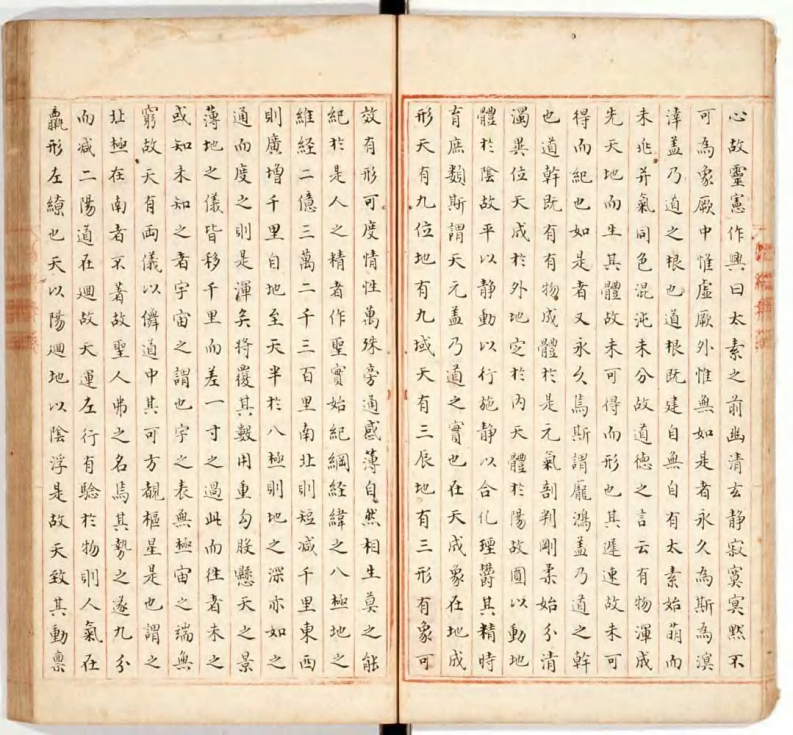 心故靈憲作興曰太素之前幽清玄静寂寞㝠黙不
可為象厥中惟虛厥外惟無如是者永久為斯為溟
涬盖乃道之根也道根既建自無自有太素始萌而
未兆并氣同色混沌未分故道德之言云有物渾成
先天地而生其體故未可得而形也其遲速故未可
得而紀也如是者又永久焉斯謂龐鴻盖乃道之幹
也道幹既有有物成體於是元氣剖判剛柔始分清
濁異位天成於外地定於內天體於陽故圓以動地
體於陰故平以静動以行施静以合化堙欝其精時
育庶類斯謂天元盖乃道之實也在天成象在地成
形天有九位地有九域天有三辰地有三形有象可
效有形可度情性萬殊旁通感薄自然相生莫之能
紀於是人之精者作聖實始紀綱經緯之八極地之
維經二億三萬二千三百里南北則短減千里東西
則廣增千里自地至天半於八極則地之深亦如之
通而度之則是渾矣將覆其數用重勾股懸天之景
薄地之儀皆移千里而差一寸之過此而徃者未之
或知未知之者宇宙之謂也宇之表無極宙之端無
窮故天有兩儀以儛道中其可方覩樞星是也謂之
北極在南者不著故聖人弗之名焉其勢之遂九分
而減二陽道在廻故天運左行有驗於物則人氣在
羸形左繚也天以陽廻地以陰浮是故天致其動禀